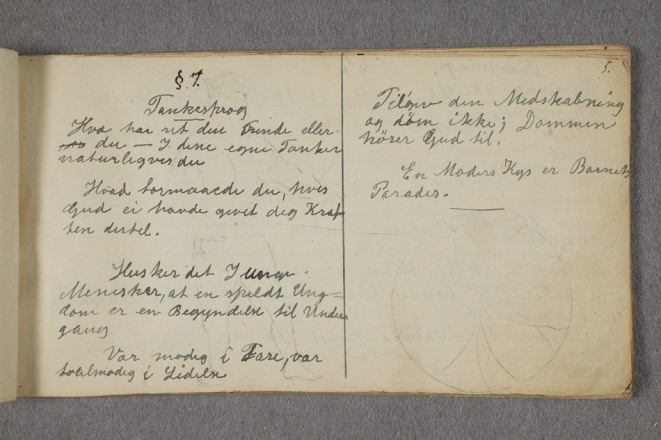 §. 7.
Tankesprog
Hvo har ret din Frinde eller
du — I dine egne Tanker
naturligvis du
Hvad formaaede du, hvis
Gud ei havde givet dig Kraf
ten dertil.
Husker det I unge
Menisker, at en spildt Ung=
dom er en Begyndelse til Under
gang
Vær modig i Fare, vær
taalmodig i Lidelse
5.
Tilgiv din Medskabning
og döm ikke; Dommen
hörer Gud til.
En Moders Kys er Barnets
Paradis.